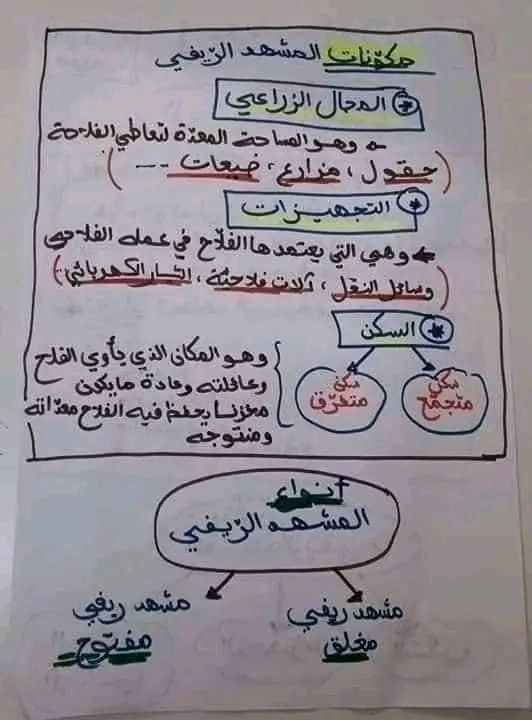 مكوّنات المشهد الرّيفي
* المجال الزراعي
وهو المساحة المعدّة لتعاطي الفلاحة
(حقول، مزارع، ضيعات ---)
* التجهيزات
وهي التي يعتمدها الفلاّح في عمله الفلاحي
(وسائل النقل، آلات فلاحيّة، التيار الكهربائي)
* السكن
سكن متجمّع
سكن متفرّق
وهو المكان الذي يأوي الفلاح
وعائلته وعادة ما يكون
مخزنا يحفظ فيه الفلاح معدّاته
ومنتوجه
أنواع
المشهد الرّيفي
مشهد ريفي
مغلق
مشهد ريفي
مفتوح